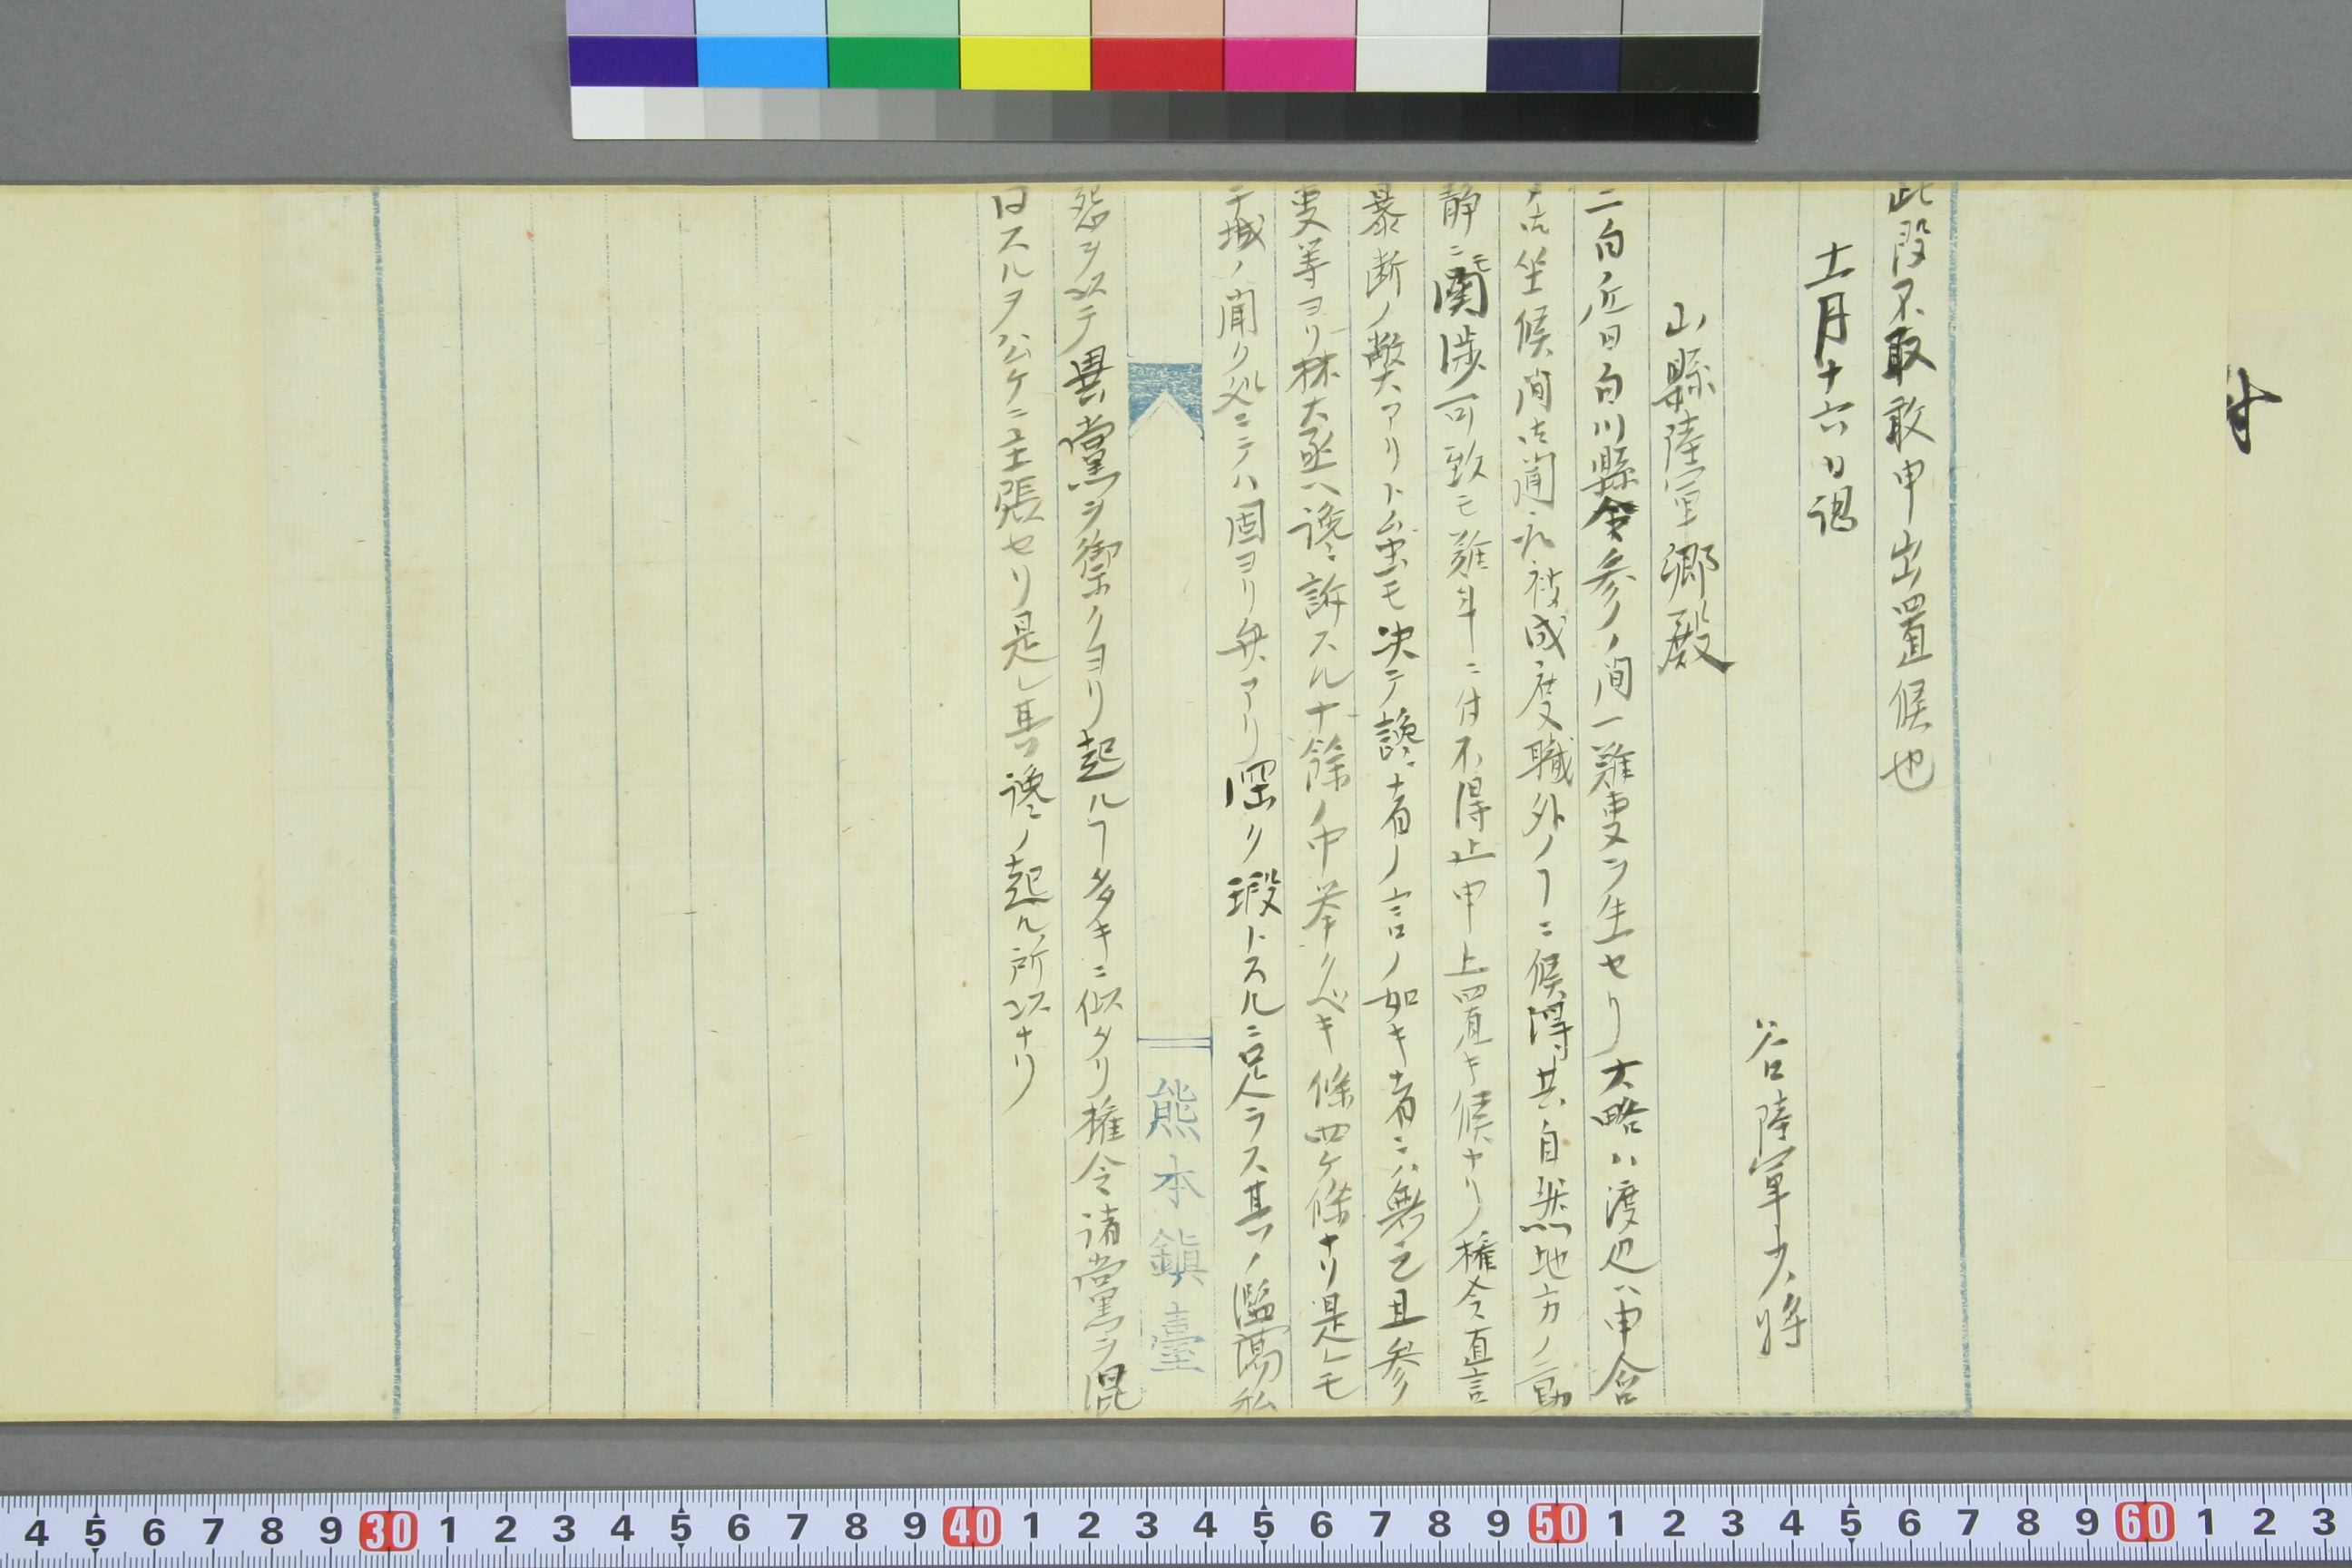 此段不取敢申出置候也
十一月十六日認
谷陸軍少将
山縣陸軍郷殿
二白近日白川縣令参ノ間一難事ヲ生セリ大略ハ渡辺ハ申含
候間御聞取被成度職外ノヿニ候得共自然地方ノ動
静ニモ関渉可致モ難斗ニ付不得止申上置キ候ナリ権令直言
暴断ノ弊アリト雖モ決テ讒者ノ言ノ如キ者ニハ無之且参
事等ヨリ林大丞ヘ讒訴スル十餘ノ中挙クベキ條四ケ條ナリ是レモ
干城ノ聞ク処ニテハ固ヨリ弁アリ深ク瑕トスルニ足ラス其ノ
怨ヲ以テ異黨ヲ禦クヨリ起ルヿ多キニ似タリ権令諸黨ヲ混
同スルヲ公ケニ主張セリ是レ其ノ讒ノ起ル所以ナリ
熊本鎮臺
30 40 50 60